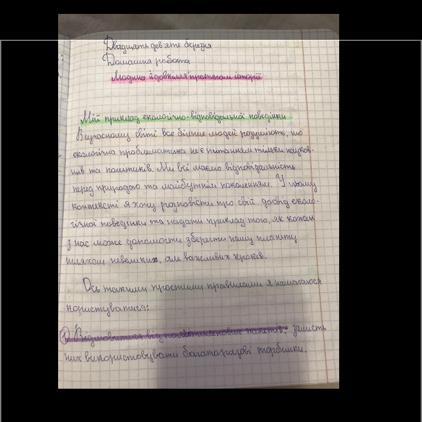 Двадцять дев'яте березня
Домашня робота
Людина й довкілля протягом історії
Мій приклад екологічно-відповідальної поведінки
В сучасному світі все більше людей розуміють, що
екологічна проблематика не є питанням тільки науков-
ців та політиків. Ми всі маємо відповідальність
перед природою та майбутнім поколінням. У цьому
контексті я хочу розповісти про свій досвід еколо-
гічної поведінки та надати приклад того, як кожен
з нас може допомогти зберегти нашу планету
шляхом невеликих, але важливих кроків.
Ось такими простими правилами я намагаюся
користуватися:
1) Відмовитися від поліетиленових пакетів, замість
них використовувати багаторазові торбинки.